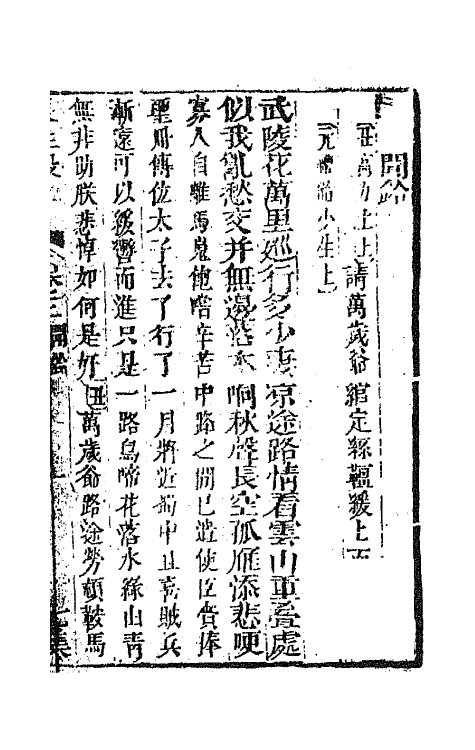 聞鈴
丑高力士上請萬歲爺綰定絲韁緩上
武陵花萬里巡行多少凄凉途路情看雲山重疊處
似我亂愁交并無邊落木响秋聲長空孤雁添悲哽
寡人自離馬嵬飽嘗辛苦中路之間已遣使臣賫捧
璽冊傳位太子去了行了一月將近蜀中且喜賊兵
漸遠可以緩轡而進只是一路鳥啼花落水綠山靑
無非助朕悲悼如何是好丑萬歲爺路途勞頓鞍馬